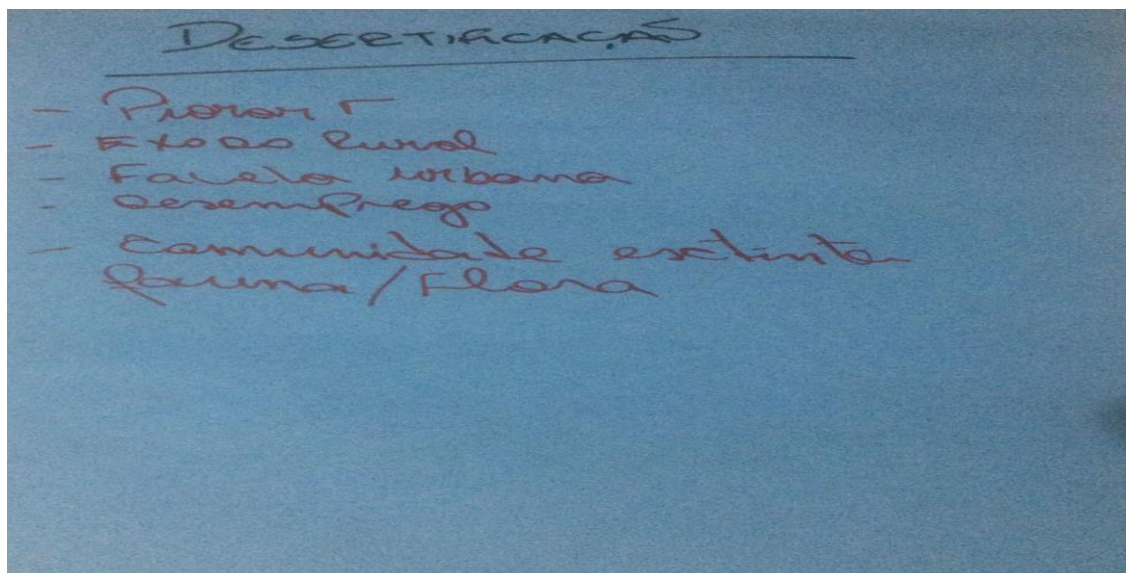 DESERTIFICAÇÃO
- Piorar
- Exodo Rural
- Favela urbana
- desemprego
- Comunidade extinta
fauna/Flora